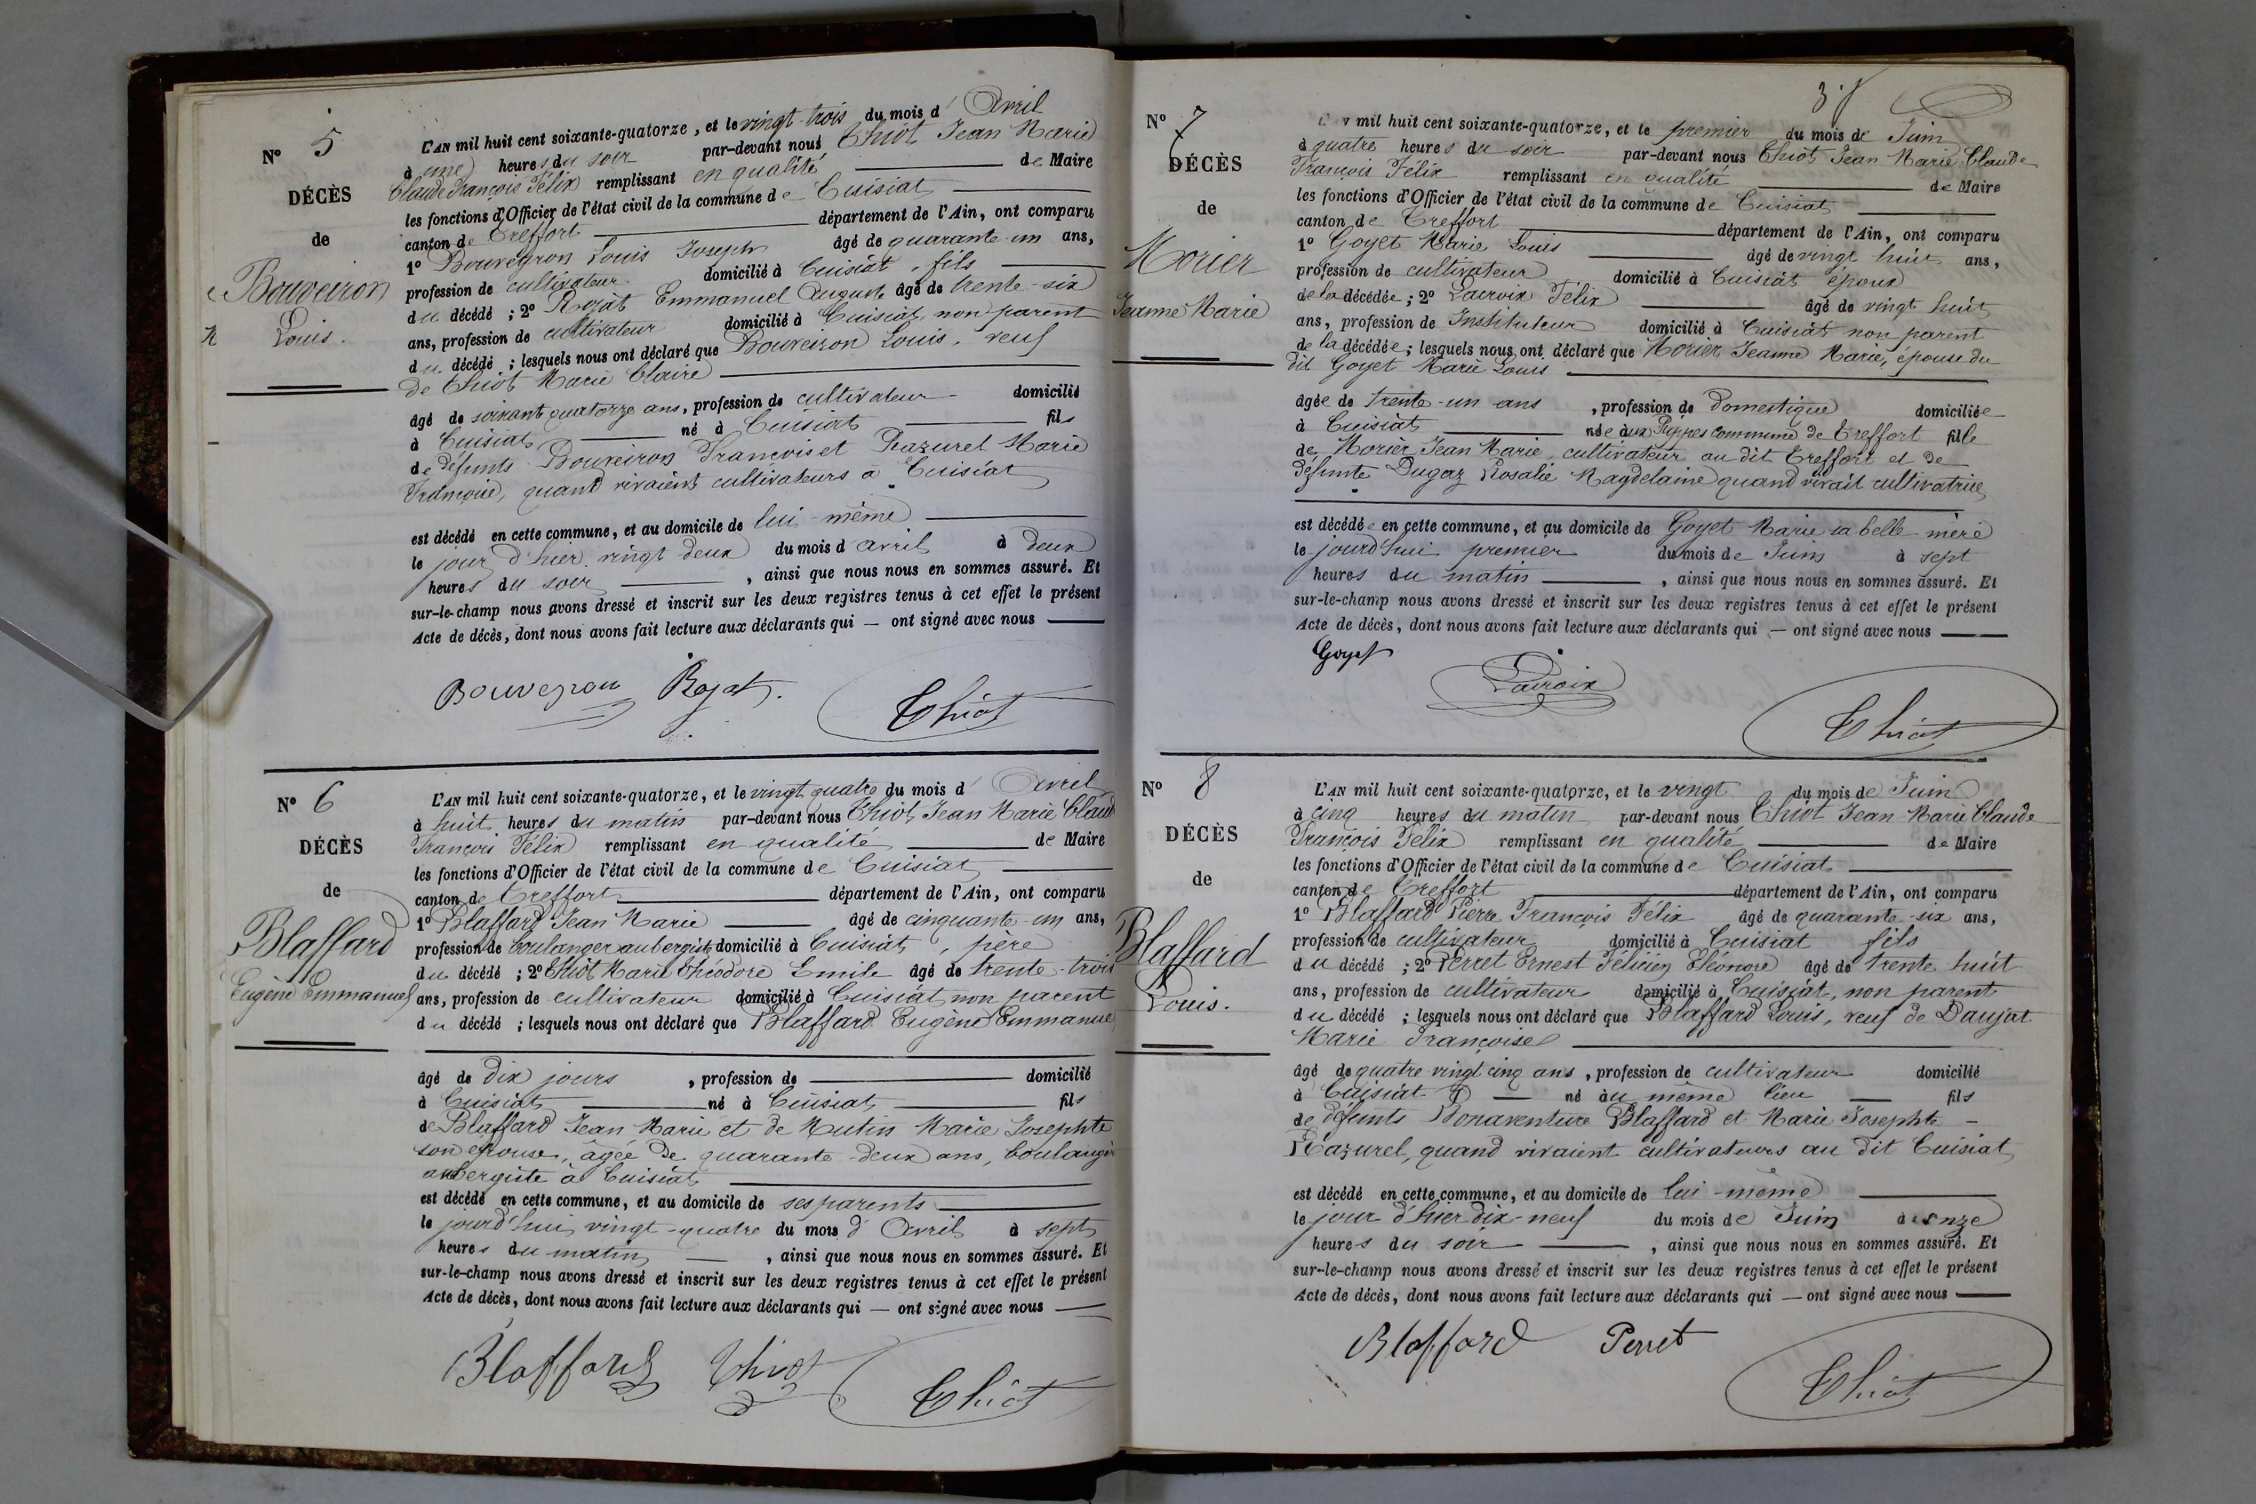 N° 5
DÉCÈS
de
Bouveiron
Louis.
L'AN mil huit cent soixante-quatorze, et le vingt-trois du mois d'Avril
à une heures du soir par-devant nous Chiot Jean Marie
Claude François Félix remplissant en qualité de Maire
les fonctions d'Officier de l'état civil de la commune de Cuisiat
canton de Treffort département de l'Ain, ont comparu
1° Bouveyron Louis Joseph âgé de quarante-un ans,
profession de cultivateur domicilié à Cuisiat, fils
du décédé ; 2° Rojat Emmanuel Auguste âgé de trente-six
ans, profession de cultivateur domicilié à Cuisiat non parent
du décédé ; lesquels nous ont déclaré que Bouveiron Louis, veuf
de Chiot Marie Claire
âgé de soixant quatorze ans, profession de cultivateur domicilié
à Cuisiat né à Cuisiat fils
de défunts Bouveiron François et Razurel Marie
Françoise, quand vivaient cultivateurs à Cuisiat
est décédé en cette commune, et au domicile de lui-même
le jour d'hier vingt deux du mois d'avril à deux
heures du soir , ainsi que nous nous en sommes assuré. Et
sur-le-champ nous avons dressé et inscrit sur les deux registres tenus à cet effet le présent
Acte de décès, dont nous avons fait lecture aux déclarants qui — ont signé avec nous
Bouveyron Rojat. Chiot
N° 6
DÉCÈS
de
Blaffard
Eugène Emmanuel
L'AN mil huit cent soixante-quatorze, et le vingt quatre du mois d'Avril
à huit heures du matin par-devant nous Chiot Jean Marie Claud
François Félix remplissant en qualité de Maire
les fonctions d'Officier de l'état civil de la commune de Cuisiat
canton de Treffort département de l'Ain, ont comparu
1° Blaffard Jean Marie âgé de cinquante-un ans,
profession de boulanger aubergiste domicilié à Cuisiat, père
du décédé ; 2° Chiot Marie Théodore Emile âgé de trente-trois
ans, profession de cultivateur domicilié à Cuisiat, non parent
du décédé ; lesquels nous ont déclaré que Blaffard Eugène Emmanuel
âgé de dix jours , profession de domicilié
à Cuisiat né à Cuisiat fils
de Blaffard Jean Marie et de Mutin Marie Josephte
son épouse, âgée de quarante-deux ans, boulangère
aubergiste à Cuisiat
est décédé en cette commune, et au domicile de ses parents
le jourd'hui vingt-quatre du mois d'Avril à sept
heures du matin , ainsi que nous nous en sommes assuré. Et
sur-le-champ nous avons dressé et inscrit sur les deux registres tenus à cet effet le présent
Acte de décès, dont nous avons fait lecture aux déclarants qui — ont signé avec nous
Blaffard Chiot Chiot
N° 7
DÉCÈS
de
Morier
Jeanne Marie
L'AN mil huit cent soixante-quatorze, et le premier du mois de Juin
à quatre heures du soir par-devant nous Chiot Jean Marie Claude
François Félix remplissant en qualité de Maire
les fonctions d'Officier de l'état civil de la commune de Cuisiat
canton de Treffort département de l'Ain, ont comparu
1° Goyet Marie Louis âgé de vingt huit ans,
profession de cultivateur domicilié à Cuisiat époux
de la décédée ; 2° Lacroix Félix âgé de vingt huit
ans, profession de Instituteur domicilié à Cuisiat non parent
de la décédée ; lesquels nous ont déclaré que Morier Jeanne Marie, épouse du
dit Goyet Marie Louis
âgée de trente-un ans , profession de Domestique domiciliée
à Cuisiat née aux Pippes Commune de Treffort fille
de Morier Jean Marie, cultivateur au dit Treffort et de
défunte Dugaz Rosalie Magdelaine quand vivait cultivatrice
est décédée en cette commune, et au domicile de Goyet Marie sa belle-mère
le jourd'hui premier du mois de Juin à sept
heures du matin , ainsi que nous nous en sommes assuré. Et
sur-le-champ nous avons dressé et inscrit sur les deux registres tenus à cet effet le présent
Acte de décès, dont nous avons fait lecture aux déclarants qui — ont signé avec nous
Goyet Lacroix Chiot
N° 8
DÉCÈS
de
Blaffard
Louis.
L'AN mil huit cent soixante-quatorze, et le vingt du mois de Juin
à cinq heures du matin par-devant nous Chiot Jean Marie Claude
François Félix remplissant en qualité de Maire
les fonctions d'Officier de l'état civil de la commune de Cuisiat
canton de Treffort département de l'Ain, ont comparu
1° Blaffard Pierre François Félix âgé de quarante-six ans,
profession de cultivateur domicilié à Cuisiat fils
du décédé ; 2° Perret Ernest Félicien Eléonore âgé de trente huit
ans, profession de cultivateur domicilié à Cuisiat, non parent
du décédé ; lesquels nous ont déclaré que Blaffard Louis, veuf de Daujat
Marie Françoise
âgé de quatre vingt cinq ans , profession de cultivateur domicilié
à Cuisiat né au même lieu fils
de défunts Bonaventure Blaffard et Marie Josephte
Razurel, quand vivaient cultivateurs au dit Cuisiat
est décédé en cette commune, et au domicile de lui-même
le jour d'hier dix-neuf du mois de Juin à onze
heures du soir , ainsi que nous nous en sommes assuré. Et
sur-le-champ nous avons dressé et inscrit sur les deux registres tenus à cet effet le présent
Acte de décès, dont nous avons fait lecture aux déclarants qui — ont signé avec nous
Blaffard Perret Chiot